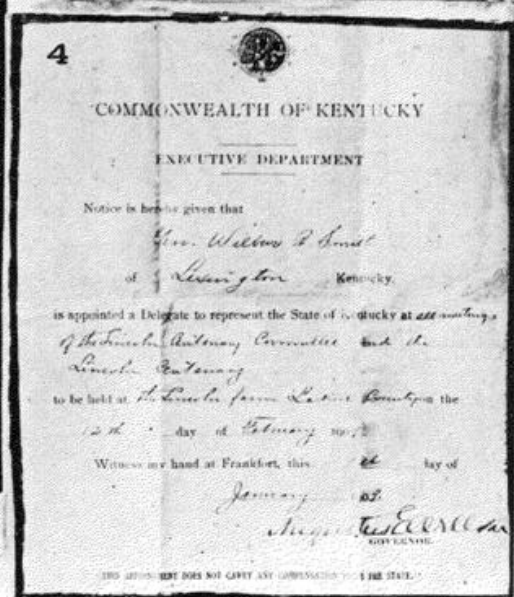 4
COMMONWEALTH OF KENTUCKY
EXECUTIVE DEPARTMENT
Notice is hereby given that
Wilbur R Smith
of Lexington Kentucky,
is appointed a Delegate to represent the State of Kentucky at all meetings
of the Lincoln Centenary Committee and the
Lincoln Centenary
to be held at the Lincoln farm Larue County on the
12th day of February 190
Witness my hand at Frankfort, this day of
January 09.
Augustus E Willson
GOVERNOR.
THIS APPOINTMENT DOES NOT CARRY ANY COMPENSATION THE STATE.